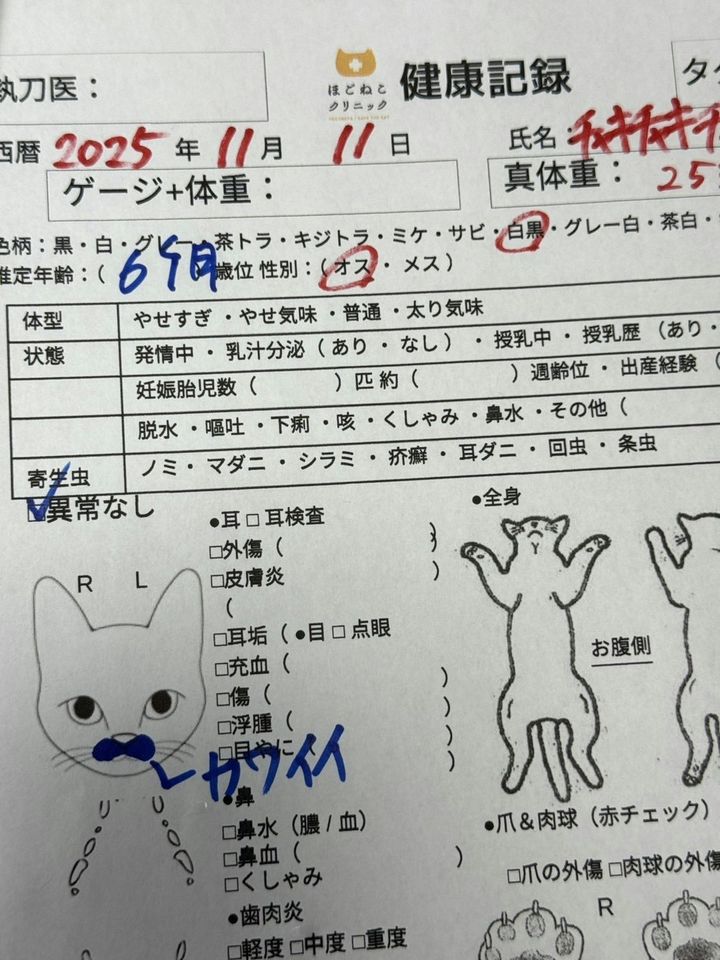 執刀医：
ほごねこ
クリニック
健康記録
西暦 2025 年 11 月 11 日
氏名：チャキチャキ
ゲージ+体重：
真体重： 25
色柄：黒・白・グレー・茶トラ・キジトラ・ミケ・サビ・白黒・グレー白・茶白・
推定年齢：（ 6ケ月 ）歳位 性別：（オス ・ メス）
体型 やせすぎ ・やせ気味 ・普通 ・太り気味
状態 発情中 ・ 乳汁分泌（あり ・ なし） ・ 授乳中 ・ 授乳歴 （あり・
妊娠胎児数（ ）匹 約（ ）週齢位 ・ 出産経験 （
脱水 ・嘔吐 ・下痢 ・咳 ・くしゃみ ・鼻水 ・その他（
寄生虫 ノミ・ マダニ ・ シラミ ・ 疥癬 ・ 耳ダニ ・ 回虫 ・ 条虫
☑異常なし
R L
●耳 □ 耳検査
□外傷（ ）
□皮膚炎 ）
（
□耳垢（ ●目 □ 点眼
□充血（ ）
□傷（ ）
□浮腫（ ）
□目やに（ ）
カワイイ
●鼻
□鼻水（膿 / 血）
□鼻血（ ）
□くしゃみ
●歯肉炎
□軽度 □中度 □重度
●全身
お腹側
●爪＆肉球（赤チェック）
□爪の外傷 □肉球の外傷
R